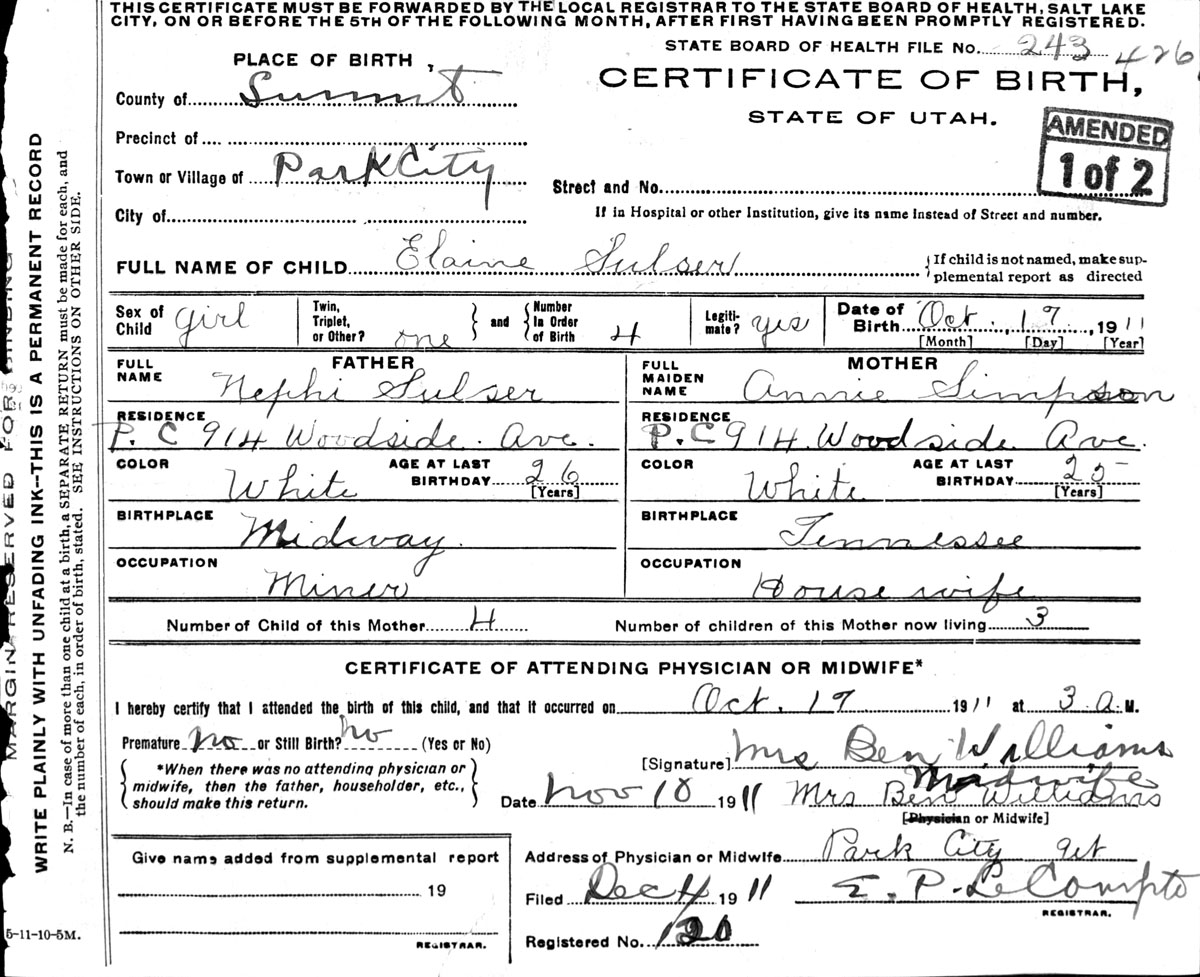 THIS CERTIFICATE MUST BE FORWARDED BY THE LOCAL REGISTRAR TO THE STATE BOARD OF HEALTH, SALT LAKE
CITY, ON OR BEFORE THE 5TH OF THE FOLLOWING MONTH, AFTER FIRST HAVING BEEN PROMPTLY REGISTERED.
STATE BOARD OF HEALTH FILE No. 243 426
PLACE OF BIRTH
CERTIFICATE OF BIRTH,
County of Summit
STATE OF UTAH.
AMENDED
1 of 2
Precinct of
Town or Village of Park City
Street and No.
City of
If in Hospital or other Institution, give its name Instead of Street and number.
FULL NAME OF CHILD Elaine Sulser
If child is not named, make sup-
plemental report as directed
Sex of Child girl
Twin, Triplet, or Other? one
and
Number In Order of Birth 4
Legiti-mate? yes
Date of Birth Oct., 19, 1911
[Month] [Day] [Year]
FATHER
FULL NAME Nephi Sulser
MOTHER
FULL MAIDEN NAME Annie Simpson
RESIDENCE P. C 914 Woodside Ave.
RESIDENCE P. C 914 Woodside Ave.
COLOR White AGE AT LAST BIRTHDAY 26 [Years]
COLOR White AGE AT LAST BIRTHDAY 25 [Years]
BIRTHPLACE Midway
BIRTHPLACE Tennessee
OCCUPATION Miner
OCCUPATION House wife
Number of Child of this Mother 4 Number of children of this Mother now living 3
CERTIFICATE OF ATTENDING PHYSICIAN OR MIDWIFE*
I hereby certify that I attended the birth of this child, and that it occurred on Oct. 19 1911 at 3 a. M.
Premature no or Still Birth? no (Yes or No)
[Signature] Mrs Ben Williams
*When there was no attending physician or
midwife, then the father, householder, etc.,
should make this return.
Midwife
Date Nov 10 1911 Mrs Ben Williams
[Physician or Midwife]
Give name added from supplemental report
19
REGISTRAR.
Address of Physician or Midwife Park City
Filed Dec 4 1911 E. P. Le Compte
REGISTRAR.
Registered No. 120
MARGIN RESERVED FOR BINDING
WRITE PLAINLY WITH UNFADING INK--THIS IS A PERMANENT RECORD
N. B.—In case of more than one child at a birth, a SEPARATE RETURN must be made for each, and
the number of each, in order of birth, stated. SEE INSTRUCTIONS ON OTHER SIDE.
5-11-10-5M.